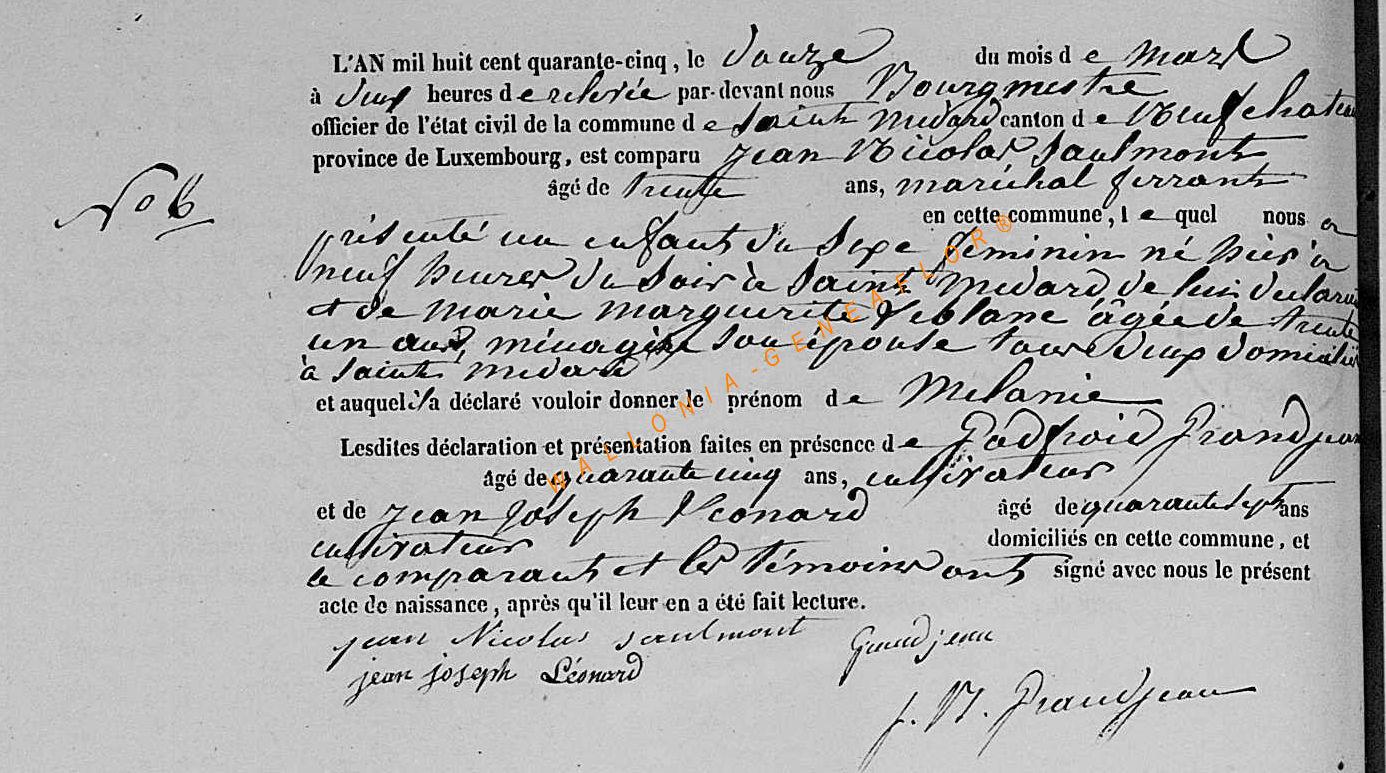 L'AN mil huit cent quarante-cinq, le douze du mois de mars
à deux heures de relevée par-devant nous Bourgmestre
officier de l'état civil de la commune de Saint Medard canton de Neufchateau
province de Luxembourg, est comparu Jean Nicolas Saulmont
No 6
âgé de trente ans, maréchal ferrant
en cette commune, lequel nous a
présenté un enfant du sexe feminin né hier à
neuf heures du soir à Saint Medard de lui déclarant
et de Marie Marguerite Leblanc âgée de trente
un ans, ménagère son épouse tous deux domiciliés
à Saint Medard
et auquel il a déclaré vouloir donner le prénom de Melanie
Lesdites déclaration et présentation faites en présence de Godfroid Grandjean
âgé de quarante cinq ans, cultivateur
et de Jean Joseph Léonard âgé de quarante sept ans
cultivateur domiciliés en cette commune, et
le comparant et les témoins ont signé avec nous le présent
acte de naissance, après qu'il leur en a été fait lecture.
jean Nicolas saulmont Grandjean
jean joseph Léonard
J. N. Grandjean
WALLONIA-GENEAFLOR®